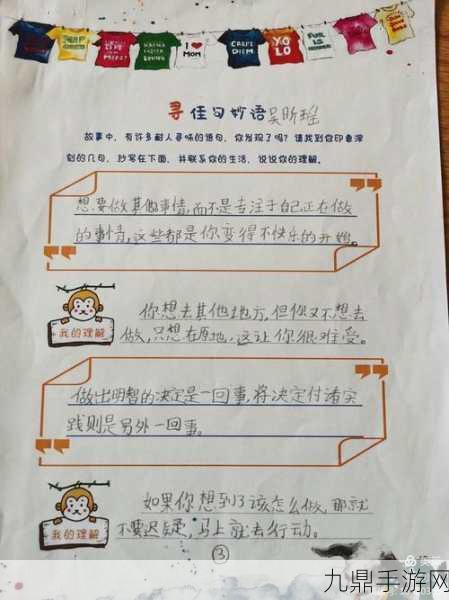 I ♥ MOM
CARPE DIEM
YO LO
寻佳句妙语吴昕瑶
故事中，有许多耐人寻味的语句，你发现了吗？请找到你印象深
刻的几句，抄写在下面，并联系你的生活，说说你的理解。
想要做其他事情，而不是专注于自己正在做
的事情，这些都是你变得不快乐的开始。
你想去其他地方，但你又不想去
做，只想在原地，这让你很难受。
我的理解
做出明智的决定是一回事，将决定付诸实
践则是另外一回事。
如果你想到了该怎么做，那就
不要迟疑，马上就去行动。
我的理解
③
九鼎手游网